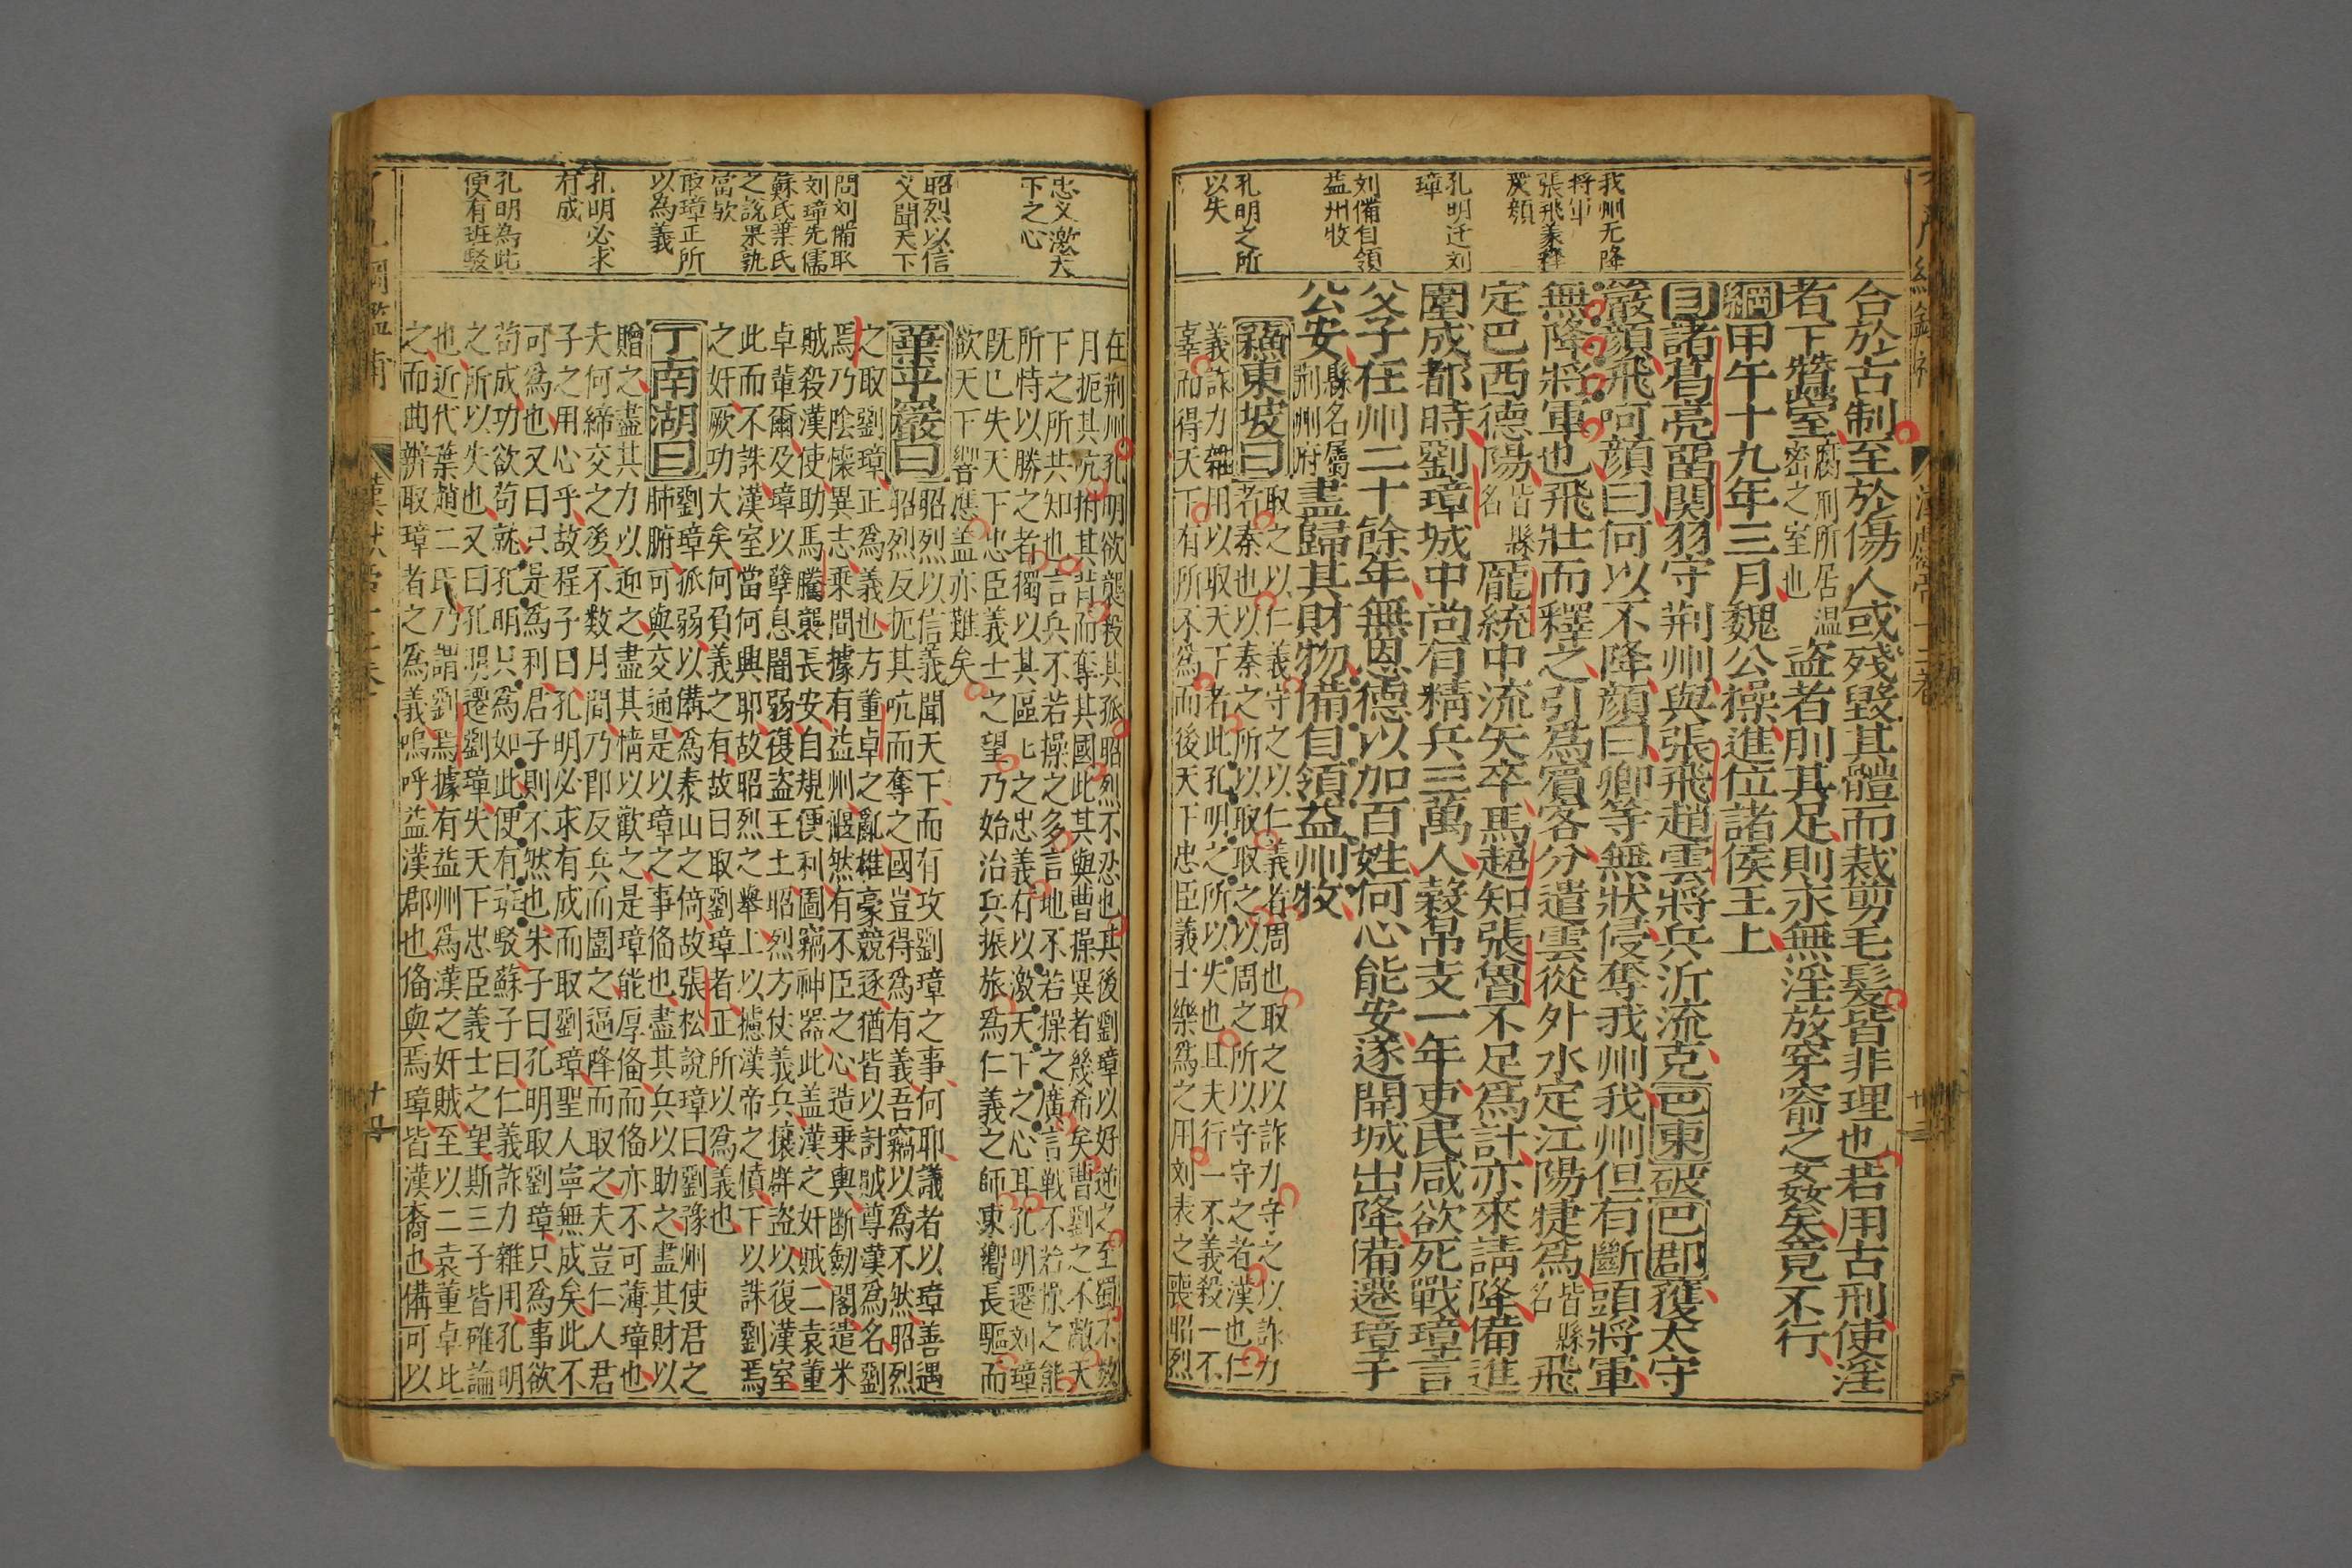 我州无降
将軍
張飛义釋
嚴顔
孔明迁刘
璋
刘備自領
益州牧
孔明之所
以失
合於古制至於傷人或殘毀其體而裁剪毛髮皆非理也若用古刑使淫
者下蠶室腐刑所居温密之室也盜者刖其足則永無淫放穿窬之姦矣竟不行
綱甲午十九年三月魏公操進位諸侯王上
目諸葛亮留関羽守荆州與張飛趙雲將兵泝流克巴東破巴郡獲太守
嚴顔飛呵顔曰何以不降顔曰卿等無狀侵奪我州我州但有斷頭將軍
無降將軍也飛壯而釋之引爲賓客分遣雲從外水定江陽犍爲皆縣名飛
定巴西德陽皆縣名龐統中流矢卒馬超知張魯不足爲計亦來請降備進
圍成都時劉璋城中尚有精兵三萬人穀帛支一年吏民咸欲死戰璋言
父子在州二十餘年無恩德以加百姓何心能安遂開城出降備遷璋于
公安縣名屬荆州府盡歸其財物備自領益州牧
蘇東坡曰取之以仁義守之以仁義者周也取之以詐力守之以詐力
者秦也以秦之所以取取之以周之所以守守之者漢也仁
義詐力雜用以取天下者此孔明之所以失也且夫行一不義殺一不
辜而得天下有所不爲而後天下忠臣義士樂爲之用刘表之喪昭烈
忠义激天
下之心
昭烈以信
义聞天下
問刘備取
刘璋先儒
蘇氏葉氏
之說果孰
當欤
取璋正所
以為義
孔明必求
有成
孔明為此
便有班駁
在荆州孔明欲襲殺其孤昭烈不忍也其後劉璋以好逆之至蜀不数
月扼其吭拊其背而奪其國此其與曹操異者幾希矣曹劉之不敵天
下之所共知也言兵不若操之多言地不若操之廣言戰不若操之能
所恃以勝之者獨以其區區之忠義有以激天下之心耳孔明遷刘璋
旣已失天下忠臣義士之望乃始治兵振旅爲仁義之師東嚮長驅而
欲天下響應盖亦難矣
華平巖曰昭烈以信義聞天下而有攻劉璋之事何耶議者以璋善遇
昭烈反扼其吭而奪之國豈得爲有義吾竊以爲不然昭烈
之取劉璋正爲義也方董卓之亂雄豪競逐猶皆以討賊尊漢爲名劉
焉乃陰懐異志乘間據有益州偃然有不臣之心造乗輿断劒閣遣米
賊殺漢使助馬騰襲長安自規便利圖竊神器此盖漢之奸賊二袁董
卓輩爾及璋以孽息闇弱復盗王土昭烈方仗義兵攘群盜以復漢室
此而不誅漢室當何興耶故昭烈之舉上以攄漢帝之憤下以誅劉焉
之奸厥功大矣何負義之有故曰取劉璋者正所以爲義也
丁南湖曰劉璋孤弱以備爲泰山之倚故張松說璋曰劉豫州使君之
肺腑可與交通是以璋之事俻也盡其兵以助之盡其財以
贈之盡其力以迎之盡其情以歡之是璋能厚俻而俻亦不可薄璋也
夫何締交之後不数月間乃即反兵而圍之逼降而取之夫豈仁人君
子之用心乎故程子曰孔明必求有成而取劉璋聖人寧無成矣此不
可為也又曰只是爲利君子則不然也朱子曰孔明取劉璋只爲事欲
苟成功欲苟就孔明只爲如此便有班駁蘇子曰仁義詐力雜用孔明
之所以失也又曰孔明遷劉璋失天下忠臣義士之望斯三子皆確論
也近代葉趙二氏乃謂劉焉據有益州爲漢之奸賊至以二袁董卓比
之而曲辨取璋者之爲義嗚呼益漢郡也俻與焉璋皆漢裔也備可以